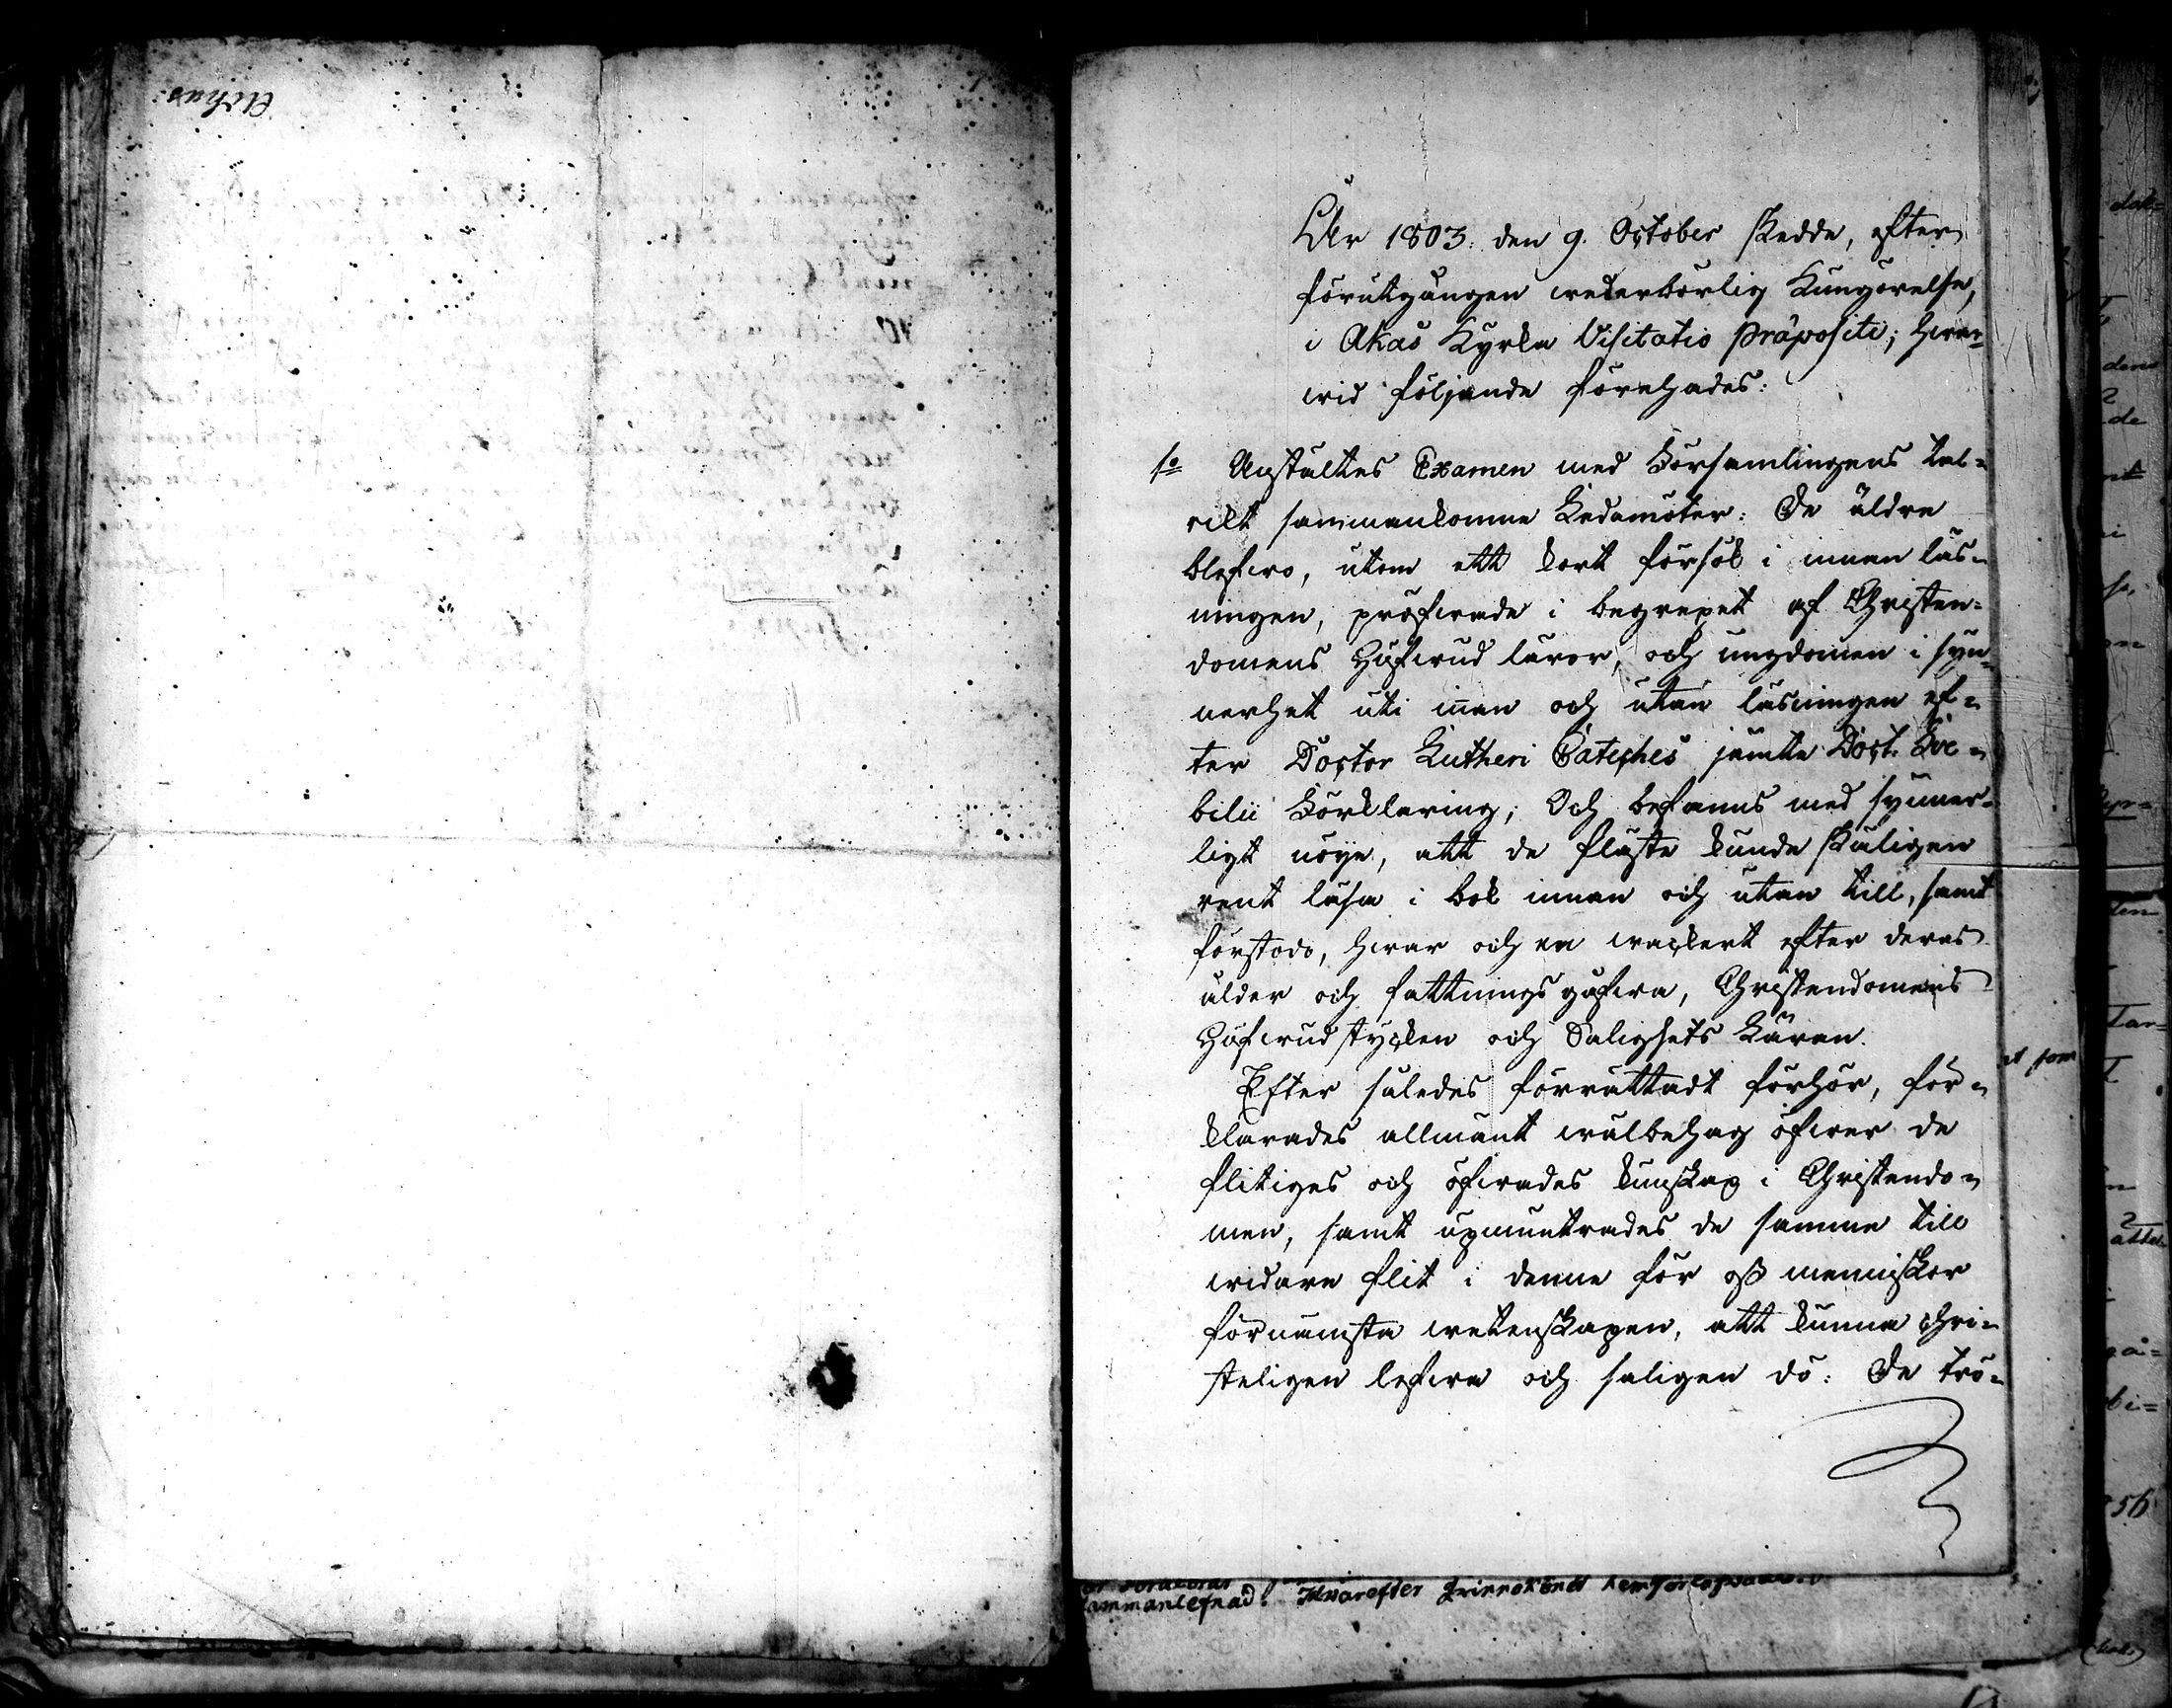 År 1803. den 9. October skedde, efter
förutgången wederbörlig Kungörelse,
i Akas Kyrka Visitatio Præpositi; hwar-
wid följande förehades:
1o Anstältes Examen med Församlingens tal-
rikt sammankomne Ledamöter: De äldre
blefwo, utom ett kort försök i innan läs-
ningen, pröfwade i begrepet af Christen-
domens Hufwud läror, och ungdomen i syn-
nerhet uti inan och utan läsningen ef-
ter Doctor Lutheri Cateches jämte Doct. Sve-
bilii Förklaring; Och befanns med synner-
ligt nöye, att de fläste kunde skäligen
rent läsa i bok innan och utan till, samt
förstodo, hwar och en wackert efter deras
ålder och fattnings gåfwa, Christendomens
Hufwudstycken och Salighets Läran.
Efter således förrättadt förhör, för-
klarades allmänt wälbehag öfwer de
flitiges och öfwades kunskap i Christendo-
men, samt upmuntrades de samme till
widare flit i denne för oss menniskor
förnämsta wetenskapen, att kunna chri-
steligen lefwa och saligen dö: De trö-
sammanlefnad! Hwarefter